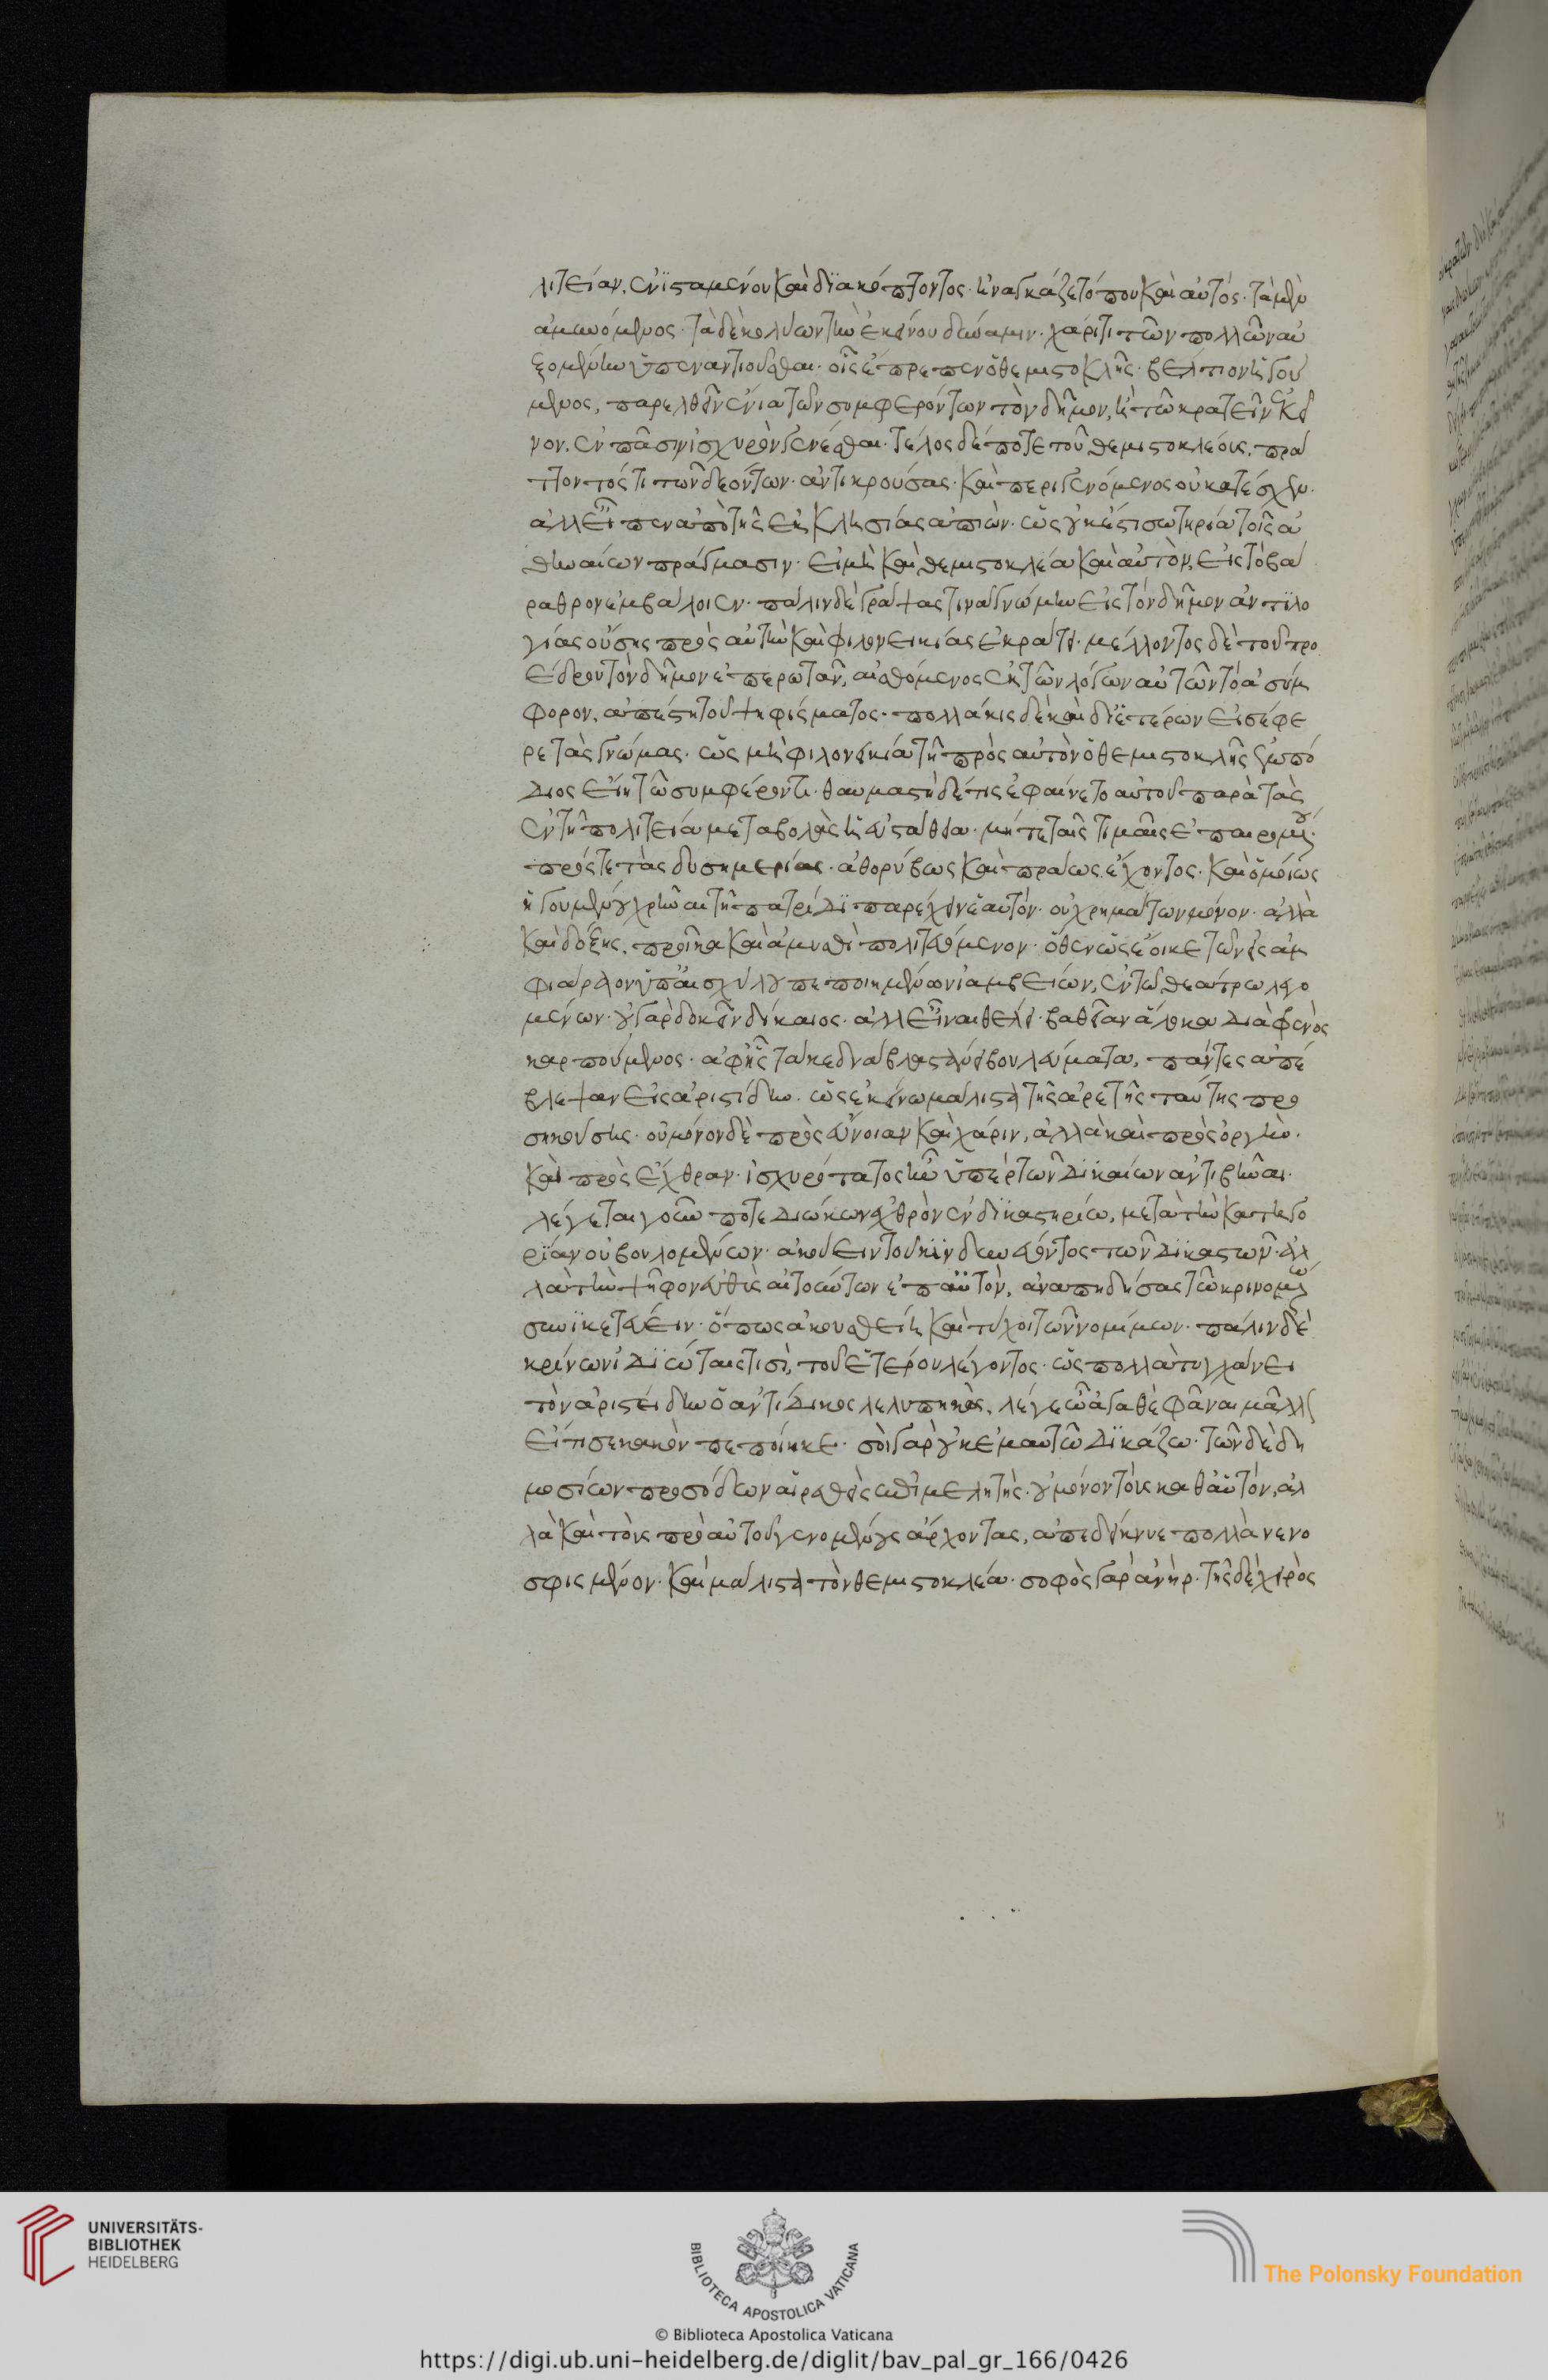 λιτείαν, ἐνϊσταμένου καὶ διακόπτοντος· ἠναγκάζετό που καὶ αὐτός· τὰ μὲν
ἀμυνόμενος· τὰ δὲ κολύων τὴν ἐκείνου δύναμιν· χάριτι τῶν πολλῶν αὐ
ξομένην ὑπεναντιοῦσθαι· οἷς ἔπρεπεν ὁ θεμιστοκλῆς· βέλτιον ἡγού
μενος, παρελθεῖν ἔνια τῶν συμφερόντων τὸν δῆμον, ἢ τῶ κρατεῖν ἐκεῖ
νον, ἐν πᾶσιν ἰσχυρὸν γενέσθαι· τέλος δέ ποτε τοῦ θεμιστοκλέους, πρά
ττοντός τι τῶν δεόντων· ἀντικρούσας· καὶ περιγενόμενος οὐ κατέσχεν·
ἀλλ εἶπεν ἀπὸ τῆς ἐκκλησίας ἀπιών· ὡς οὐκ ἔστι σωτηρία τοῖς ἀ
θηναίων πράγμασιν· εἰ μὴ καὶ θεμιστοκλέα καὶ αὐτὸν, εἰς τὸ βά
ραθρον ἐμβάλοιεν· πάλιν δὲ γράψας τινὰ γνώμην εἰς τὸν δῆμον ἀντιλο
γίας οὔσης πρὸς αὐτὴν καὶ φιλονεικίας ἐκράτει· μέλλοντος δὲ τοῦ προ
έδρου τὸν δῆμον ἐπερωτᾶν, αἰσθόμενος ἐκ τῶν λόγων αὐτῶν τὸ ἀσύμ
φορον, ἀπέστη τοῦ ψηφίσματος· πολλάκις δὲ καὶ δι ἑτέρων εἰσέφε
ρε τὰς γνώμας· ὡς μὴ φιλονεικία τῆ πρὸς αὐτὸν ὁ θεμιστοκλῆς ἐμπό
διος εἴη τῶ συμφέροντι· θαυμαστὴ δέ τις ἐφαίνετο αὐτοῦ παρὰ τὰς
ἐν τῆ πολιτεία μεταβολὰς ἡ εὐστάθεια· μήτε ταῖς τιμαῖς ἐπαιρομένου·
πρός τε τὰς δυσημερίας· ἀθορύβως καὶ πράως ἔχοντος· καὶ ὁμοίως
ἡγουμένου χρῆναι τῆ πατρίδι παρέχειν ἑαυτόν· οὐ χρημάτων μόνον· ἀλλὰ
καὶ δόξης, προῖκα καὶ ἀμισθὶ πολιτευόμενον· ὅθεν ὡς ἔοικε τῶν εἰς ἀμ
φιάραον ὑπ αἰσχύλου πεποιημένων ἰαμβείων, ἐν τῶ θεάτρω λεγο
μένων· οὐ γὰρ δοκεῖν δίκαιος· ἀλλ εἶναι θέλει· βαθεῖαν ἄλοκα διὰ φρενὸς
καρπούμενος· ἀφ ἧς τὰ κεδνὰ βλαστάνει βουλεύματα, πάντες ἀπέ
βλεψαν εἰς ἀριστίδην· ὡς ἐκείνω μάλιστα τῆς ἀρετῆς ταύτης προ
σηκούσης· οὐ μόνον δὲ πρὸς εὔνοιαν καὶ χάριν, ἀλλὰ καὶ πρὸς ὀργὴν·
καὶ πρὸς ἔχθραν· ἰσχυρότατος ἦν ὑπὲρ τῶν δικαίων ἀντιβῆναι·
λέγεται γοῦν ποτε διώκων ἐχθρὸν ἐν δικαστηρίω, μετὰ τὴν κατηγο
ρίαν οὐ βουλομένων· ἀκούειν τοῦ κινδυνεύοντος τῶν δικαστῶν· ἀλ
λὰ τὴν ψῆφον εὐθὺς αἰτούντων ἐπ αὐτὸν, ἀναπηδήσας τῶ κρινομένω
συνϊκετεύειν· ὅπως ἀκουσθείη καὶ τύχοι τῶν νομίμων· πάλιν δὲ
κρίνων ἰδιώταις τισὶ, τοῦ ἑτέρου λέγοντος· ὡς πολλὰ τυγχάνει
τὸν ἀριστείδην ὁ ἀντίδικος λελυπηκὼς, λέγε ὦ ἀγαθὲ φάναι μᾶλλον
εἴ τι σε κακὸν πεποίηκε· σοὶ γὰρ οὐκ ἐμαυτῶ δικάζω· τῶν δὲ δη
μοσίων προσόδων αἱρεθεὶς ἐπιμελητὴς· οὐ μόνον τοὺς καθ αὑτόν, ἀλ
λὰ καὶ τοὺς πρὸ αὐτοῦ γενομένους ἄρχοντας, ἀπεδείκνυε πολλὰ νενο
σφισμένον· καὶ μάλιστα τὸν θεμιστοκλέα· σοφὸς γὰρ ἀνὴρ· τῆς δὲ χειρὸς
UNIVERSITÄTS-
BIBLIOTHEK
HEIDELBERG
BIBLIOTECA APOSTOLICA VATICANA
The Polonsky Foundation
© Biblioteca Apostolica Vaticana
https://digi.ub.uni-heidelberg.de/diglit/bav_pal_gr_166/0426